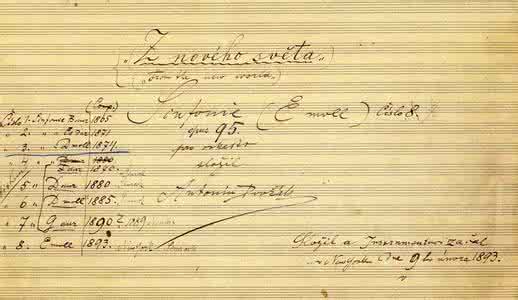 "Z nového světa."
("From the new world.")
Sinfonie (E moll) Číslo 8.
opus 95.
pro orkestr
složil
Antonín Dvořák
(Comp.)
Číslo 1. Sinfonie B dur 1865
" 2. " Es dur 1871
" 3. " D moll 1874.
" 4 " D dur 1880
" 5 " D dur 1880
" 6 " D moll 1885.
" 7 " G dur 1890
" 8. E moll 1893. New York
začal
v New Yorku dne 9ho února 1893.